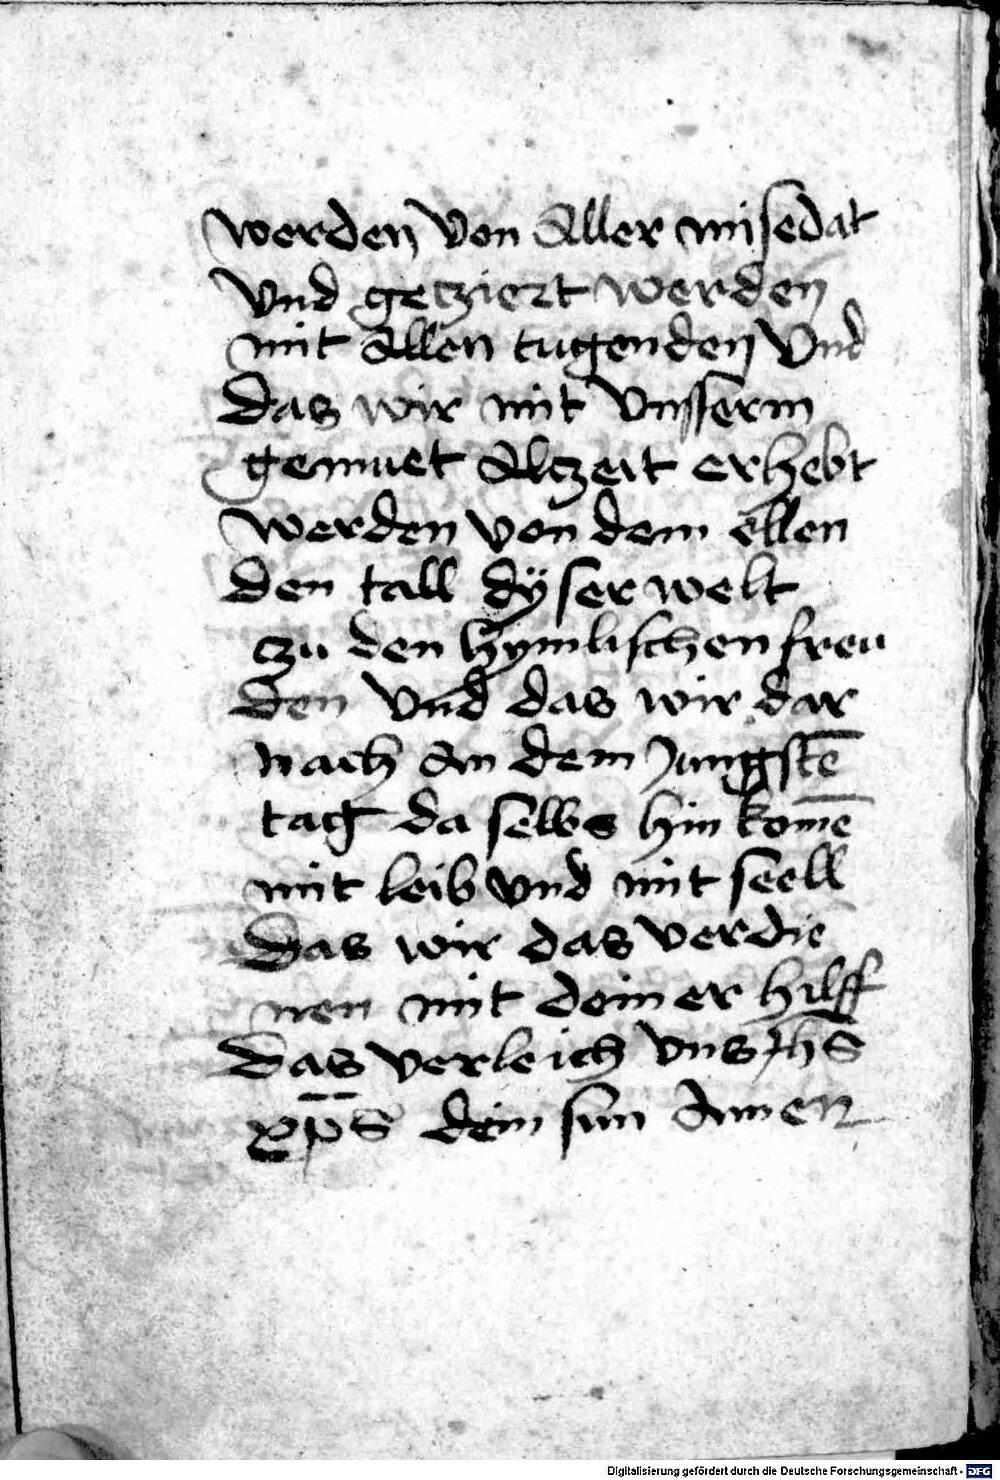 werden von Aller misedat
vnd getziert werden
mit Allen tugenden vnd
das wir mit vnsserm
gemuet Alczeit erhebt
werden von dem ellen
den tall dÿser welt
czu den hymlischen freu
den vnd das wir dar
nach An dem Jungstē
tag da selbs hin komē
mit leib vnd mit seell
Das wir das verdie
nen mit deiner hilff
das verleich vns Jhs
xp̄s dein sun Amen
Digitalisierung gefördert durch die Deutsche Forschungsgemeinschaft - DFG